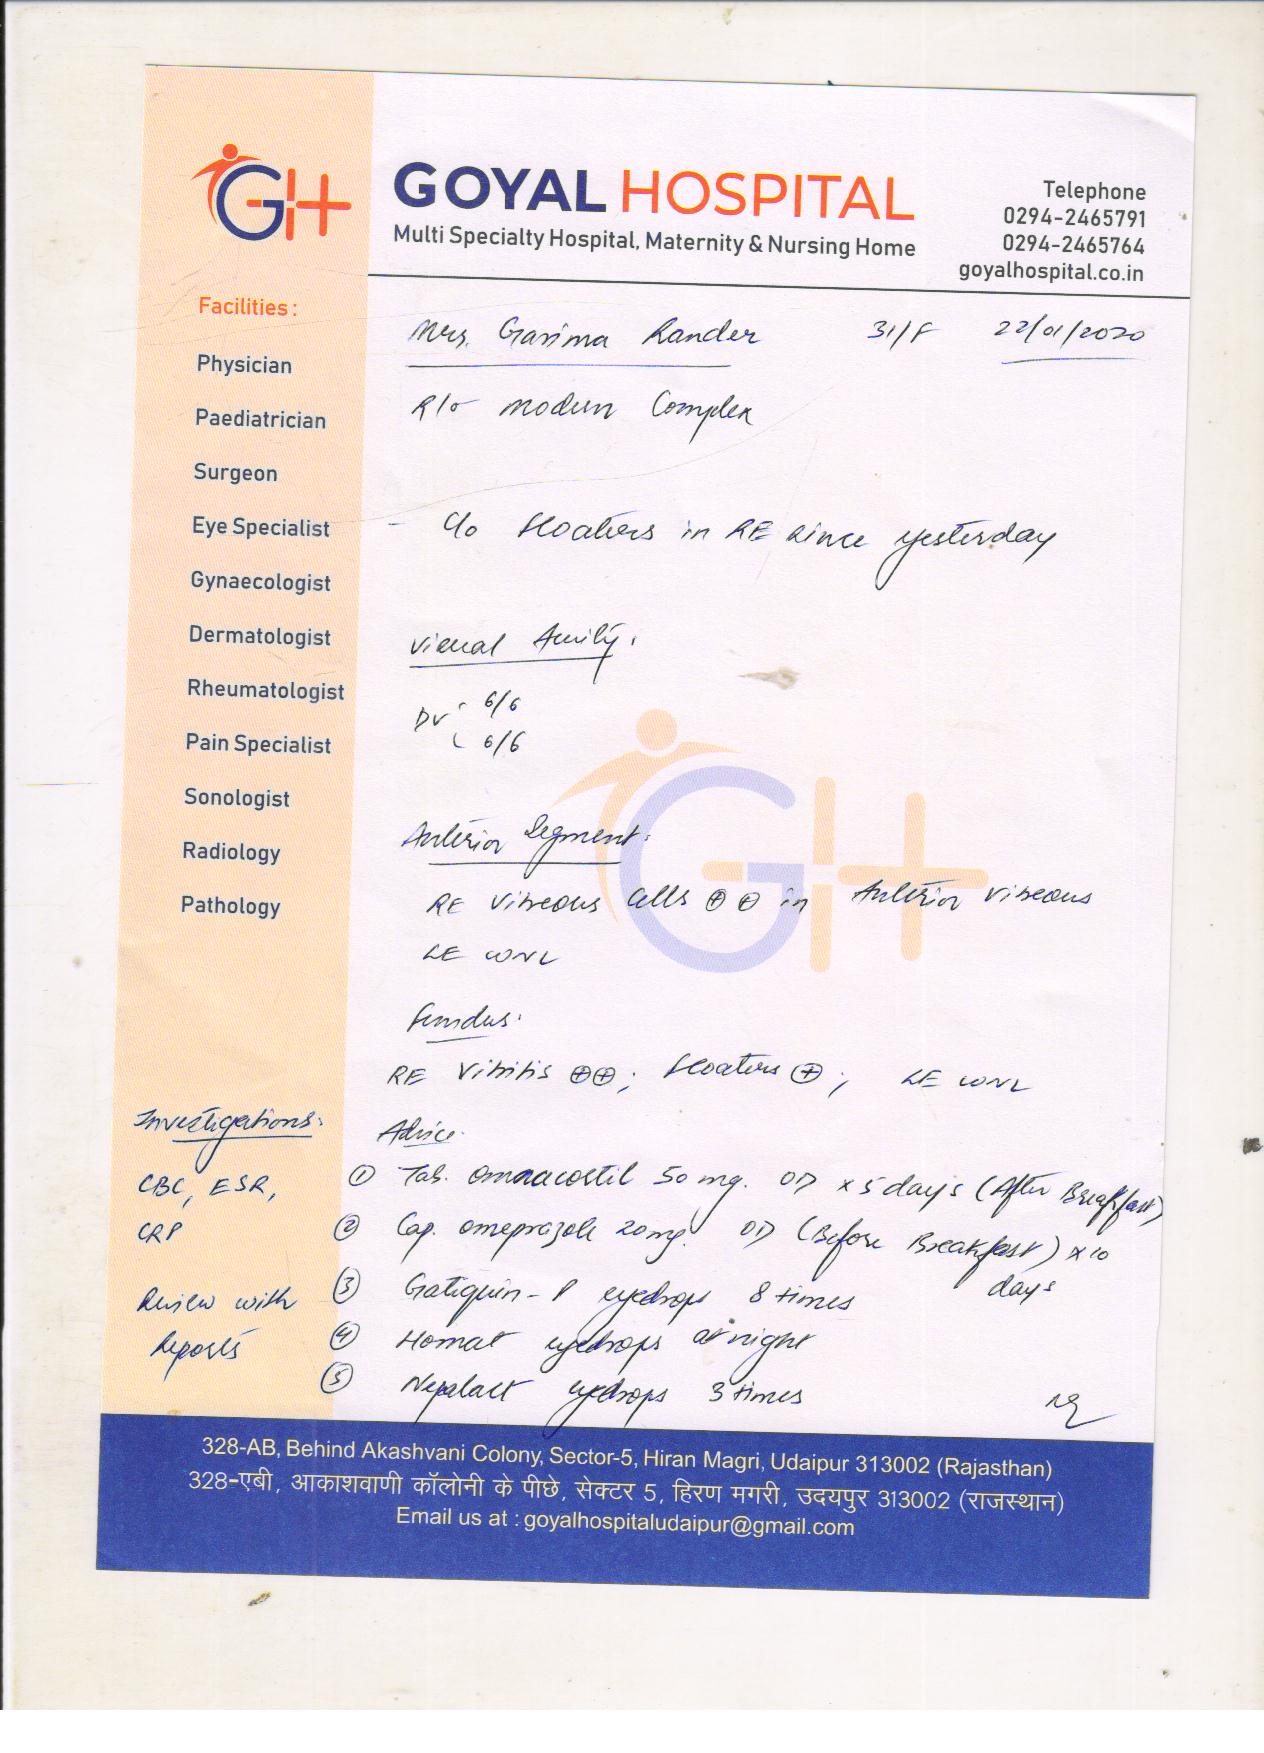 GH
GOYAL HOSPITAL
Multi Specialty Hospital, Maternity & Nursing Home
Telephone
0294-2465791
0294-2465764
goyalhospital.co.in
Facilities :
Physician
Paediatrician
Surgeon
Eye Specialist
Gynaecologist
Dermatologist
Rheumatologist
Pain Specialist
Sonologist
Radiology
Pathology
Mrs. Garima Rander 31/F 22/01/2020
R/o Modern Complex
- C/o floaters in RE since yesterday
Visual Acuity:
DV 6/6
6/6
GH
Anterior Segment:
RE Vitreous Cells ⊕ ⊕ in Anterior Vitreous
LE WNL
Fundus:
RE Vitritis ⊕⊕; floaters ⊕; LE WNL
Investigations:
CBC, ESR,
CRP
Review with
Reports
Advice:
① Tab. Omnacortil 50 mg. OD x 5 days (After Breakfast)
② Cap. Omeprazole 20mg. OD (Before Breakfast) x 10
days
③ Gatiquin-P eyedrops 8 times
④ Homat eyedrops at night
⑤ Nepalact eyedrops 3 times
328-AB, Behind Akashvani Colony, Sector-5, Hiran Magri, Udaipur 313002 (Rajasthan)
328-एबी, आकाशवाणी कॉलोनी के पीछे, सेक्टर 5, हिरण मगरी, उदयपुर 313002 (राजस्थान)
Email us at : goyalhospitaludaipur@gmail.com